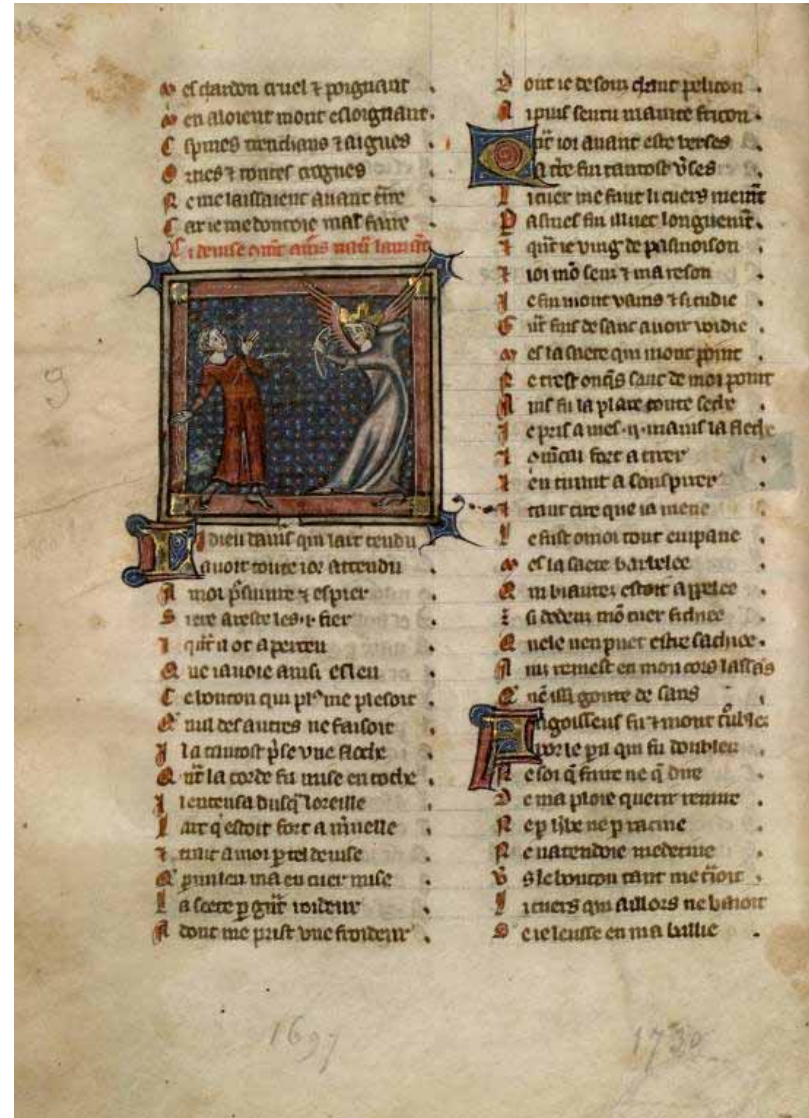 M es chardon cruel ⁊ poignant
M en aloient mont esloignant
E spines trenchans ⁊ aigues
O rties ⁊ ronces crogues
N e me laissaient auant tire
C ar ie me doutoie mal faire
Ci deuise amis
L i dieu damṡ qui lart tendu
a uoit toute ior attendu
A moi psuiure ⁊ espier
S iere areste les .i. fier
⁊ quāt il ot aperceu
Q ue iauoie ainsi esleu
C e bouton qui plꝰ me plesoit
Q̄ nul des autres ne faisoit
I l a tantost pͥse vne fleche
Q āt la corde fu mise en coche
I l entensa dusq̄ loreille
L art q̄ estoit fort a mͥuelle
⁊ trait a moi ꝑ tel deuise
Q̄ ꝑmi leu ma eu cuer mise
L a seete ꝑ grāt roideur
A dont me prist vne froideur
D ont ie desouz chaut pelicon
A i puis sentu mainte fricon
Q āt ioi auant este berses
A tͥre fui tantost vͤses
L i cuer me faut li cuers ment
P asmes fui illuec longuemt̄
⁊ quāt ie ving de pasmoison
⁊ ioi mō sens ⁊ ma reson
I e fui mont vains ⁊ si cudie
G āt fais de sanc auoir voidie
M es la saete qui mont point
N e trest onq̄s sanc de moi point
A ins fu la plaie toute seche
I e pris a mes .ij. mains la fleche
⁊ cōmcai fort a tirer
⁊ en tirant a souspirer
⁊ tant tire que ia mene
L e fust o moi tout enpane
M es la saete barbelee
Q ui biautez estoit appelee
F u si dedenz mō cuer fichiee
Q uele nen puet estre sachiee
A ins remest en mon cors lassas
Q̄ nē issi goute de sans
A ngoisseus fu ⁊ mont tͦublez
por le pil qui fu doublez
N e soi q̄ faire ne q̄ dire
D e ma plaie querir
N e ꝑ h̓be ne ꝑ racine
N e natendoie medecine
V ͬs le bouton tant me tͣioit
L i cuers qui aillors ne baioit
S e ie leusse en ma baillie
1697
1730